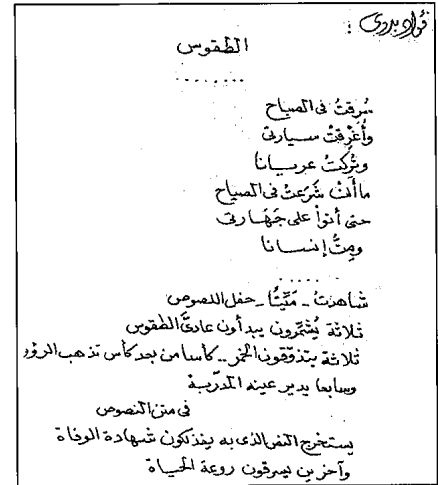 فؤاد بدوى :
الطقوس
........
سُرِقتُ فى الصباح
وأُغرِقتْ سيارتى
وتُرِكتُ عريانا
ما أنْ شَرَعتُ فى الصياح
حتى أتوْا على جَهَارتى
ومِتُّ إنسانا
......
شاهدتُ - مَيّتًا - حفل اللصوص
ثلاثة يُشَمّرون يبدأون عادىَّ الطقوس
ثلاثة يتذوّقون الخمر .. كأسا من بعد كأس تذهب الرؤو
وسابعا يدير عينه المدرّبة
فى متن النصوص
يستخرج النص الذى به يفذلكون شهادة الوفاة
وآخرين يسرقون روعة الحياة